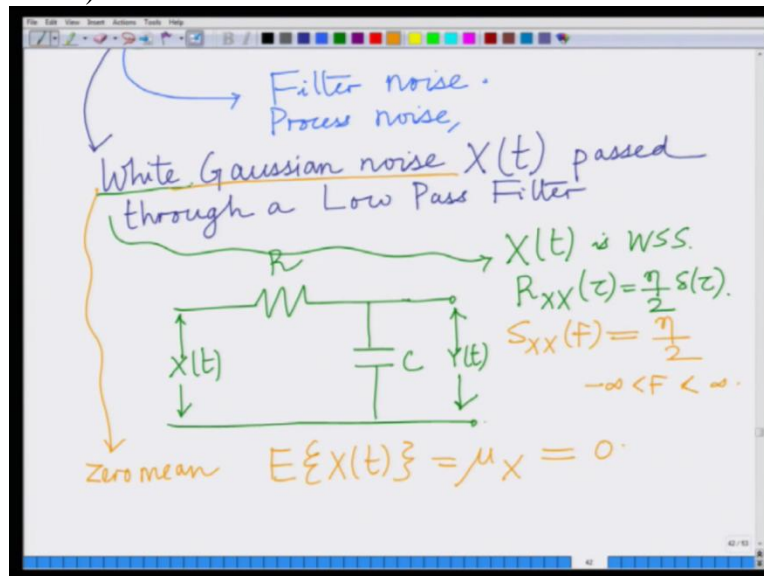 File Edit View Insert Actions Tools Help
Filter noise.
Process noise,
White Gaussian noise X(t) passed
through a Low Pass Filter
X(t) is WSS.
R
R_XX(τ) = η/2 δ(τ).
S_XX(F) = η/2
X(t) C Y(t)
-∞ < F < ∞.
zero mean E{X(t)} = μ_X = 0.
42 / 93
42